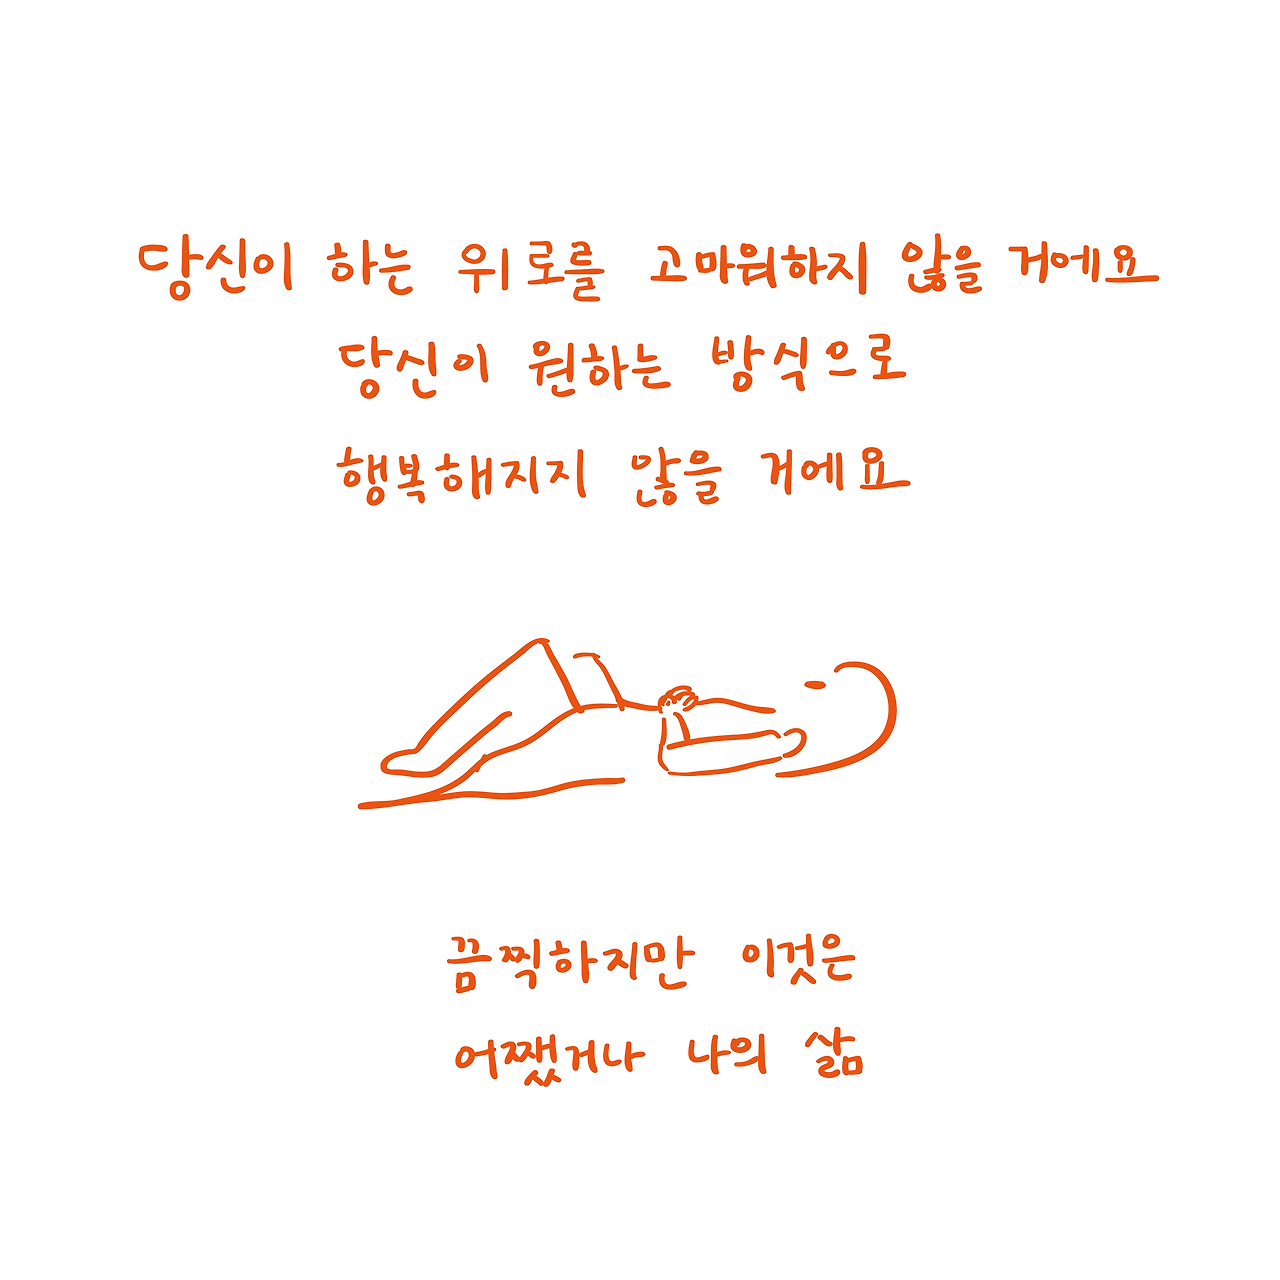 당신이 하는 위로를 고마워하지 않을 거에요
당신이 원하는 방식으로
행복해지지 않을 거에요
끔찍하지만 이것은
어쨌거나 나의 삶